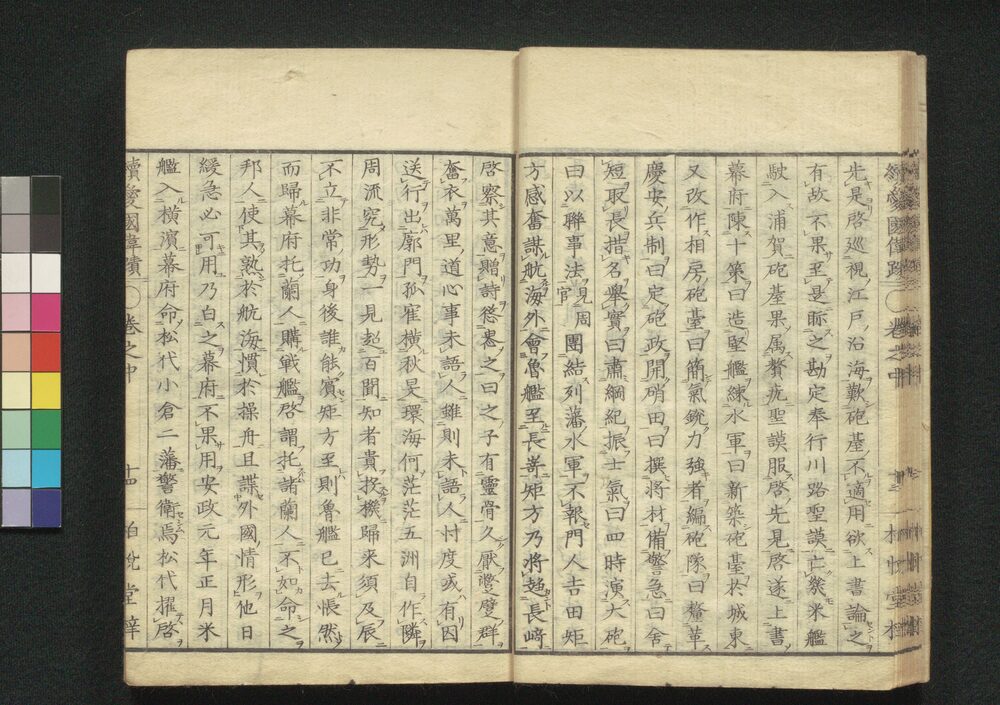 先是啓巡視江戸沿海歎砲䑓不適用欲上書論之
有故不果至是眎之勘定奉行川路聖謨亡幾米艦
駛入浦賀砲䑓果属贅疣聖謨服啓先見啓遂上書
幕府陳十策曰造堅艦練水軍曰新築砲䑓於城東
又改作相房砲䑓曰簡氣鋭力強者編砲隊曰釐革
慶安兵制曰定砲政開硝田曰撰將材備警急曰舍
短取長措名舉實曰肅綱紀振士氣曰四時演大砲
曰以聯事法見周官團結列藩水軍不報門人吉田矩
方感奮謀航海外會魯艦至長嵜矩方乃將趨長﨑
啓察其意贈詩慫慂之曰之子有靈骨久厭蹩躄群
奮衣萬里道心事未語人雖則未語人忖度或有因
送行出廓門孤雀横秋旻環海何茫茫五洲自作隣
周流究形勢一見超百聞知者貴投機歸来須及辰
不立非常功身後誰能賓矩方至則魯艦已去悵然
而歸幕府托蘭人購戰艦啓謂托諸蘭人不如命之
邦人使其熟於航海慣於操舟且諜外國情形他日
緩急必可用乃白之幕府不果用安政元年正月米
艦入横濱幕府命松代小倉二藩警衛焉松代擢啓
卷之中 十四